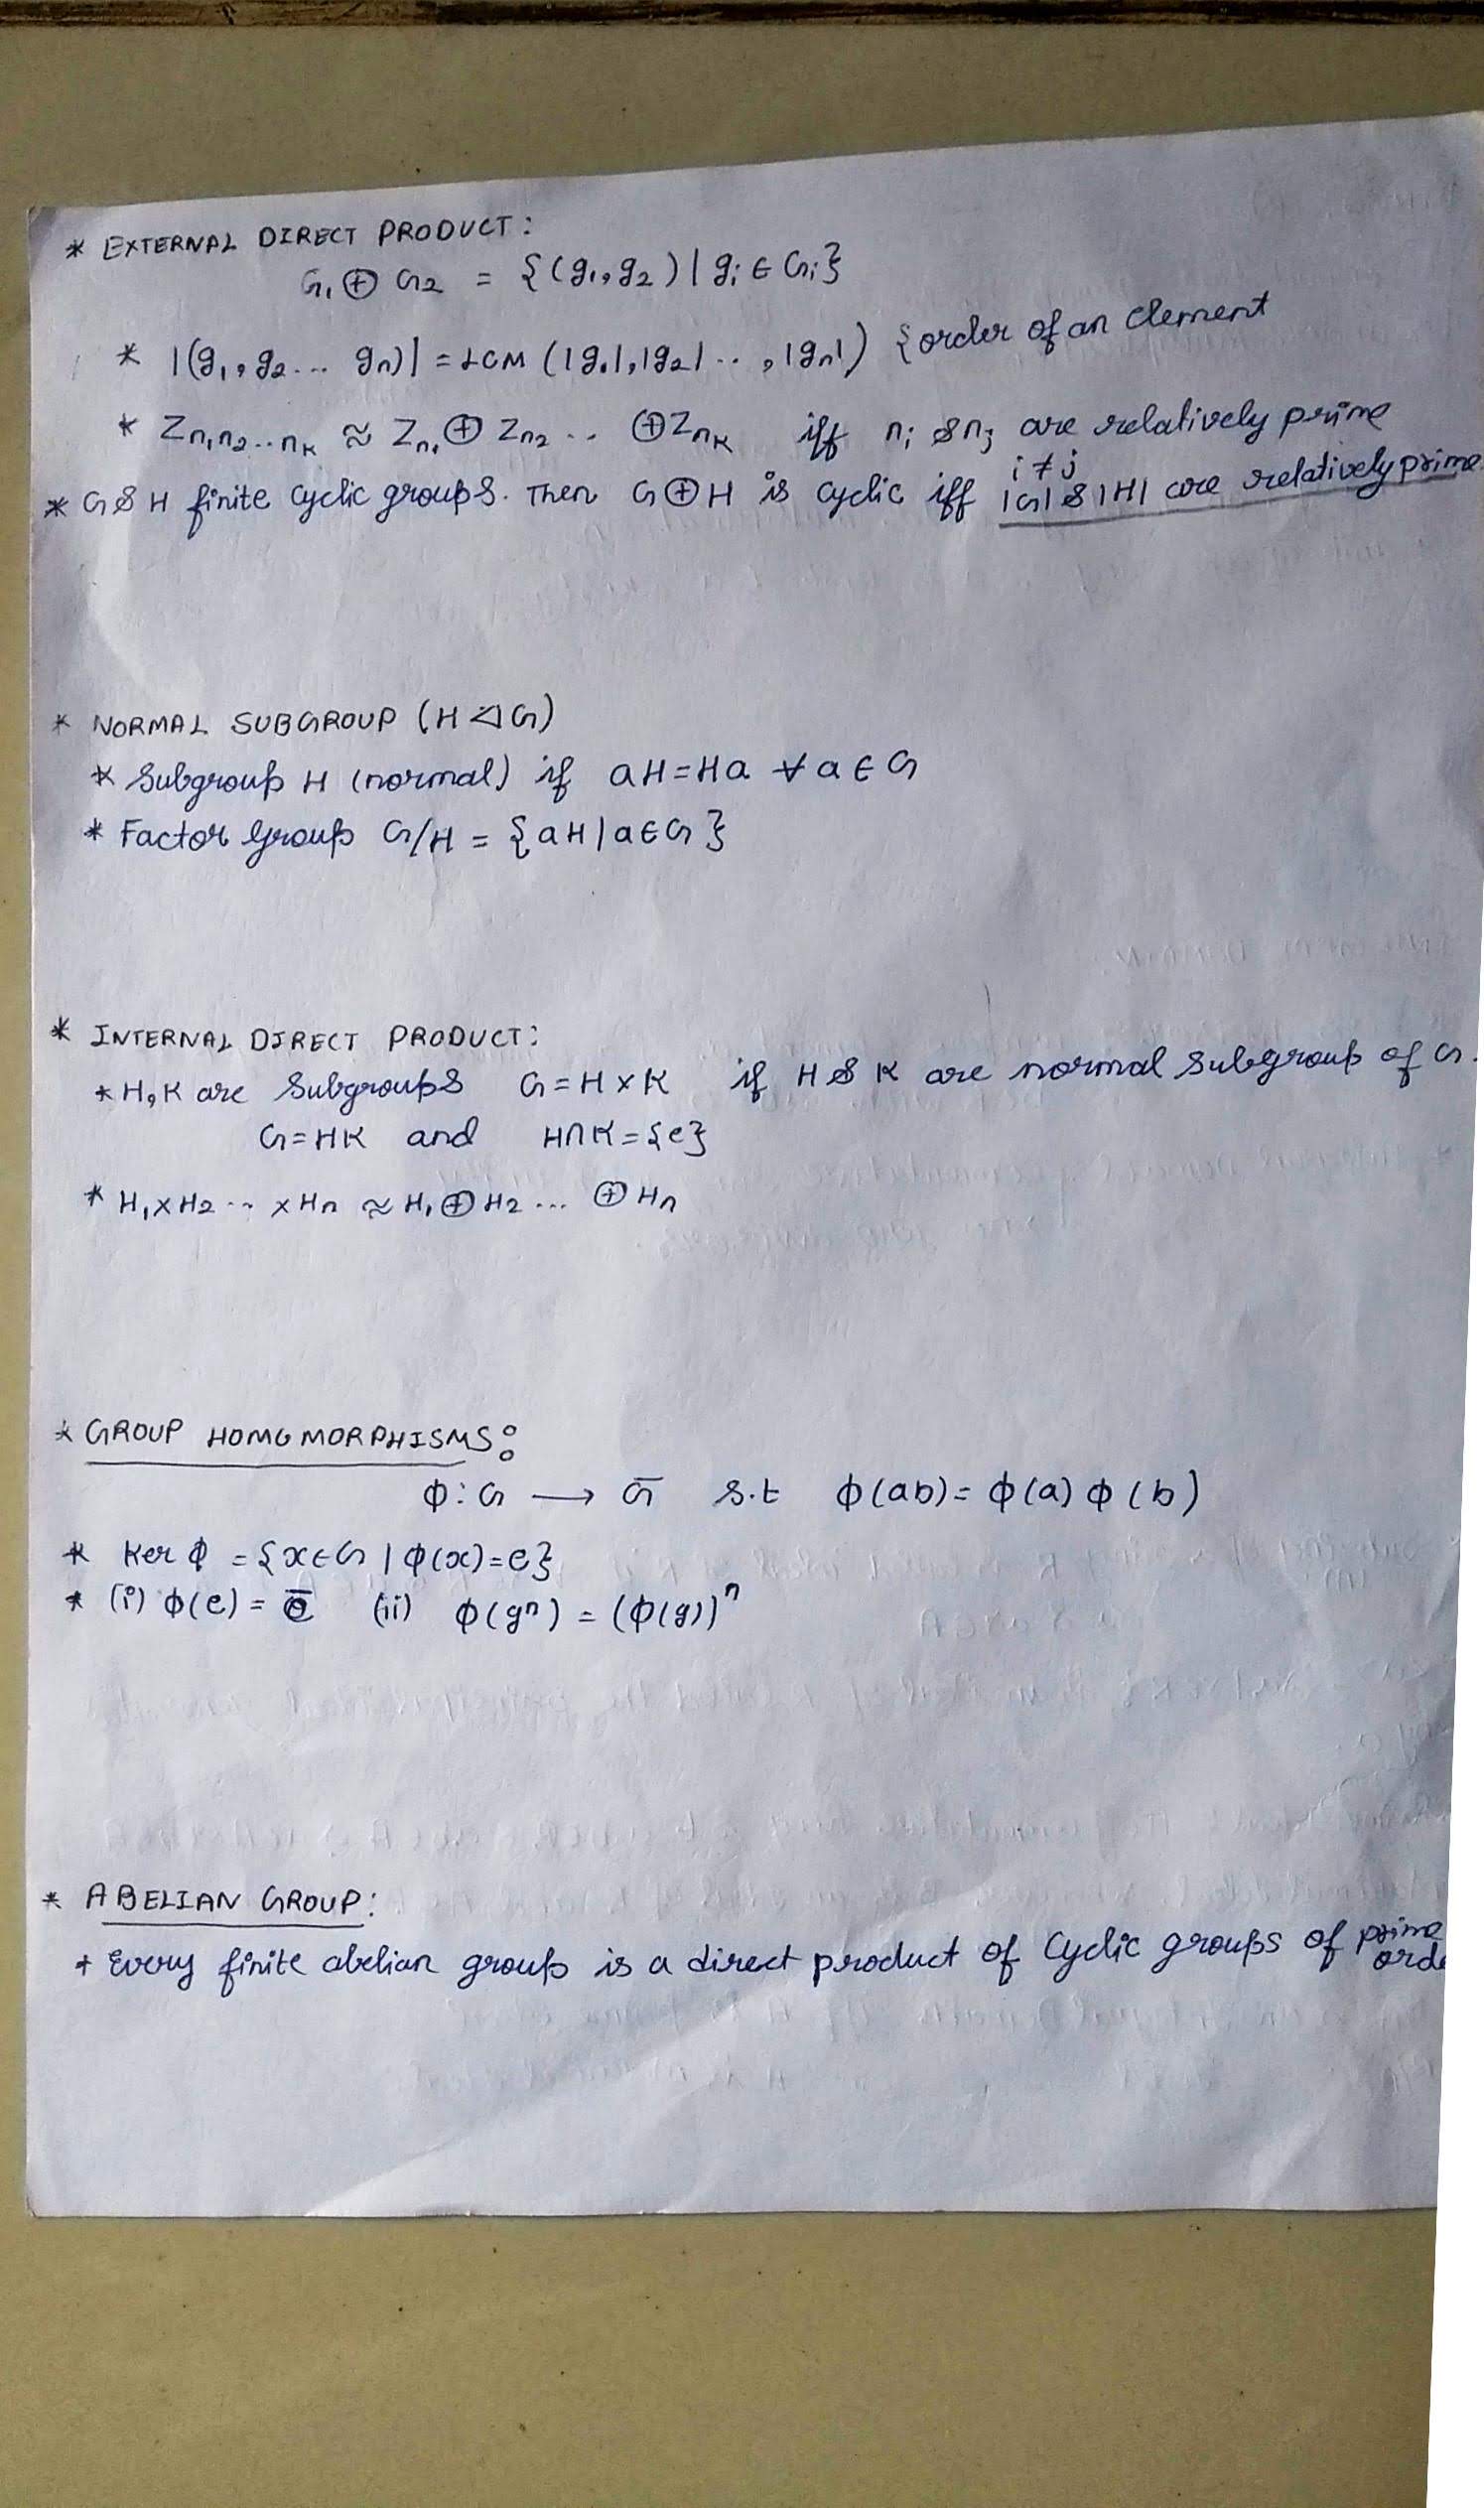 * EXTERNAL DIRECT PRODUCT:
G₁ ⊕ G₂ = {(g₁, g₂) | gᵢ ∈ Gᵢ}
* |(g₁, g₂ ... gₙ)| = LCM (|g₁|, |g₂| .. , |gₙ|) {order of an element
* Zn₁n₂..nₖ ≈ Zn₁ ⊕ Zn₂ .. ⊕ Znₖ iff nᵢ & nⱼ are relatively prime
i ≠ j
* G & H finite cyclic groups. Then G ⊕ H is cyclic iff |G| & |H| are relatively prime
* NORMAL SUBGROUP (H ⊲ G)
* Subgroup H (normal) if aH = Ha ∀ a ∈ G
* Factor Group G/H = {aH | a ∈ G}
* INTERNAL DIRECT PRODUCT:
* H, K are Subgroups G = H × K if H & K are normal subgroup of G.
G = HK and H ∩ K = {e}
* H₁ × H₂ ... × Hₙ ≈ H₁ ⊕ H₂ ... ⊕ Hₙ
* GROUP HOMOMORPHISMS:
ϕ : G → G̅ s.t ϕ(ab) = ϕ(a) ϕ(b)
* Ker ϕ = {x ∈ G | ϕ(x) = e}
* (i) ϕ(e) = e̅ (ii) ϕ(gⁿ) = (ϕ(g))ⁿ
* ABELIAN GROUP:
* Every finite abelian group is a direct product of Cyclic groups of prime
orde